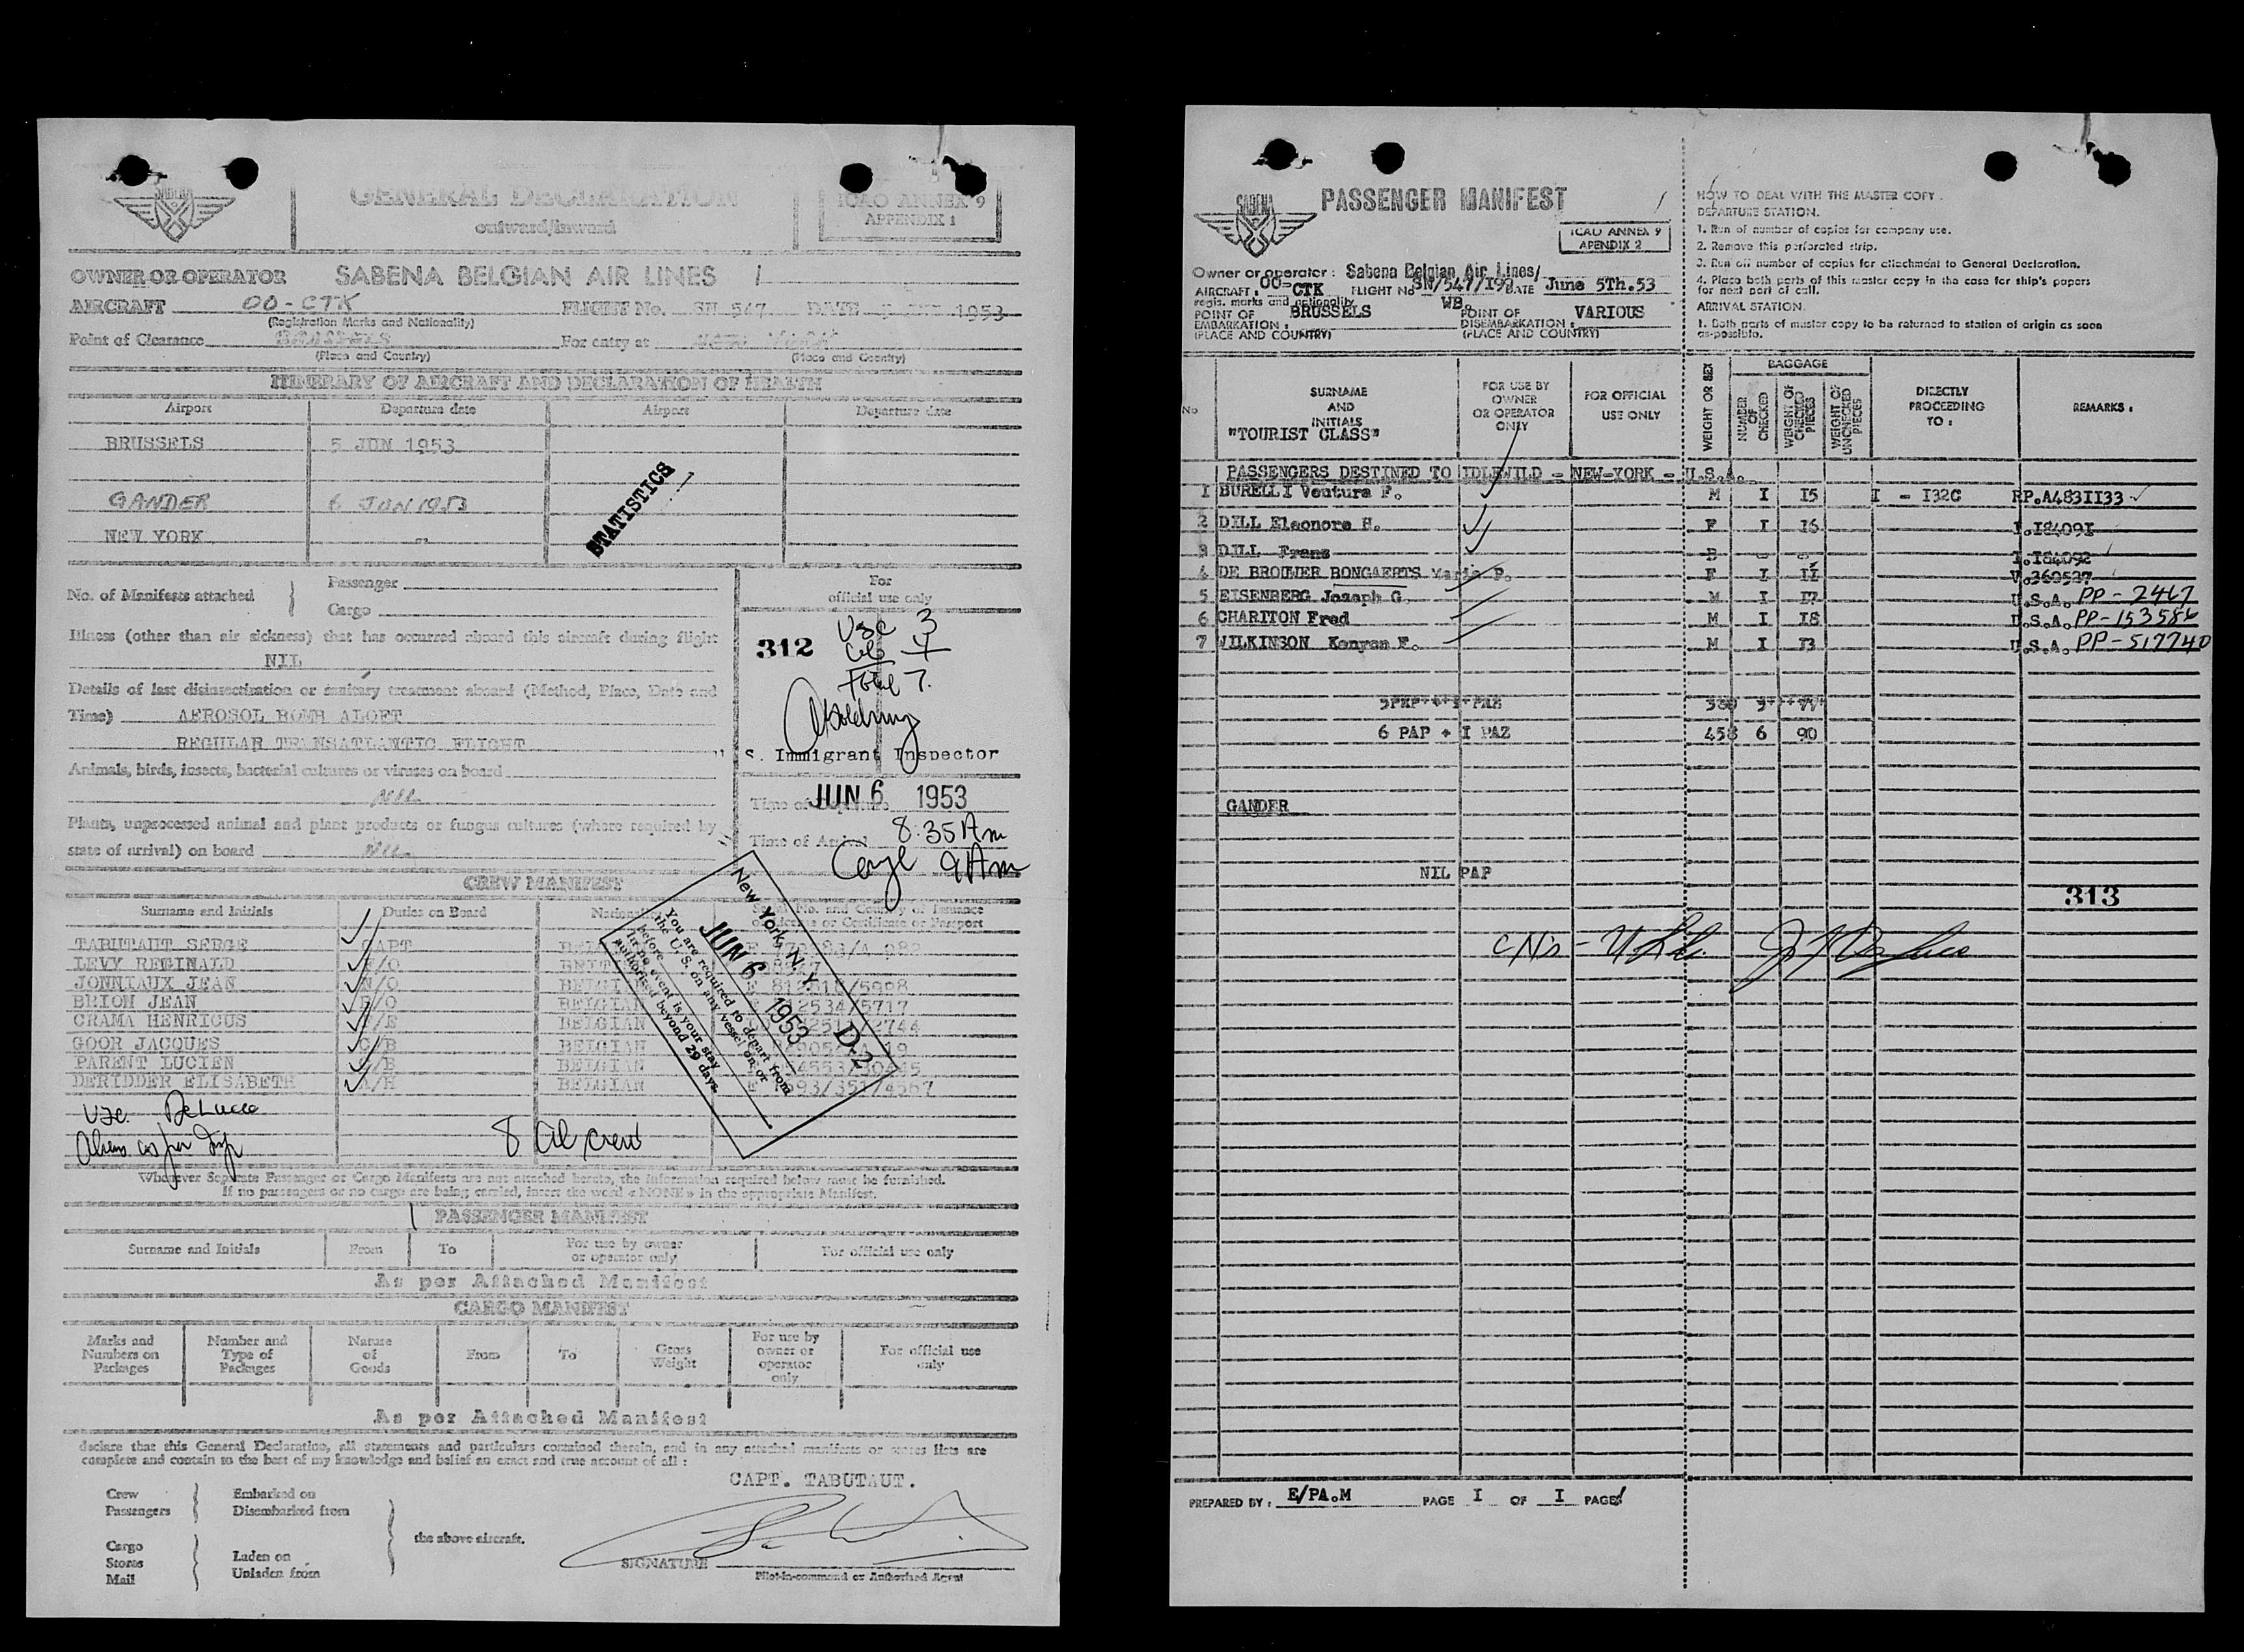 SABENA
GENERAL DECLARATION
outward/inward
ICAO ANNEX 9
APPENDIX 1
OWNER OR OPERATOR SABENA BELGIAN AIR LINES
AIRCRAFT OO-CTK FLIGHT No. SN 547 DATE 5 JUN 1953
(Registration Marks and Nationality)
Point of Clearance BRUSSELS For entry at NEW YORK
(Place and Country) (Place and Country)
ITINERARY OF AIRCRAFT AND DECLARATION OF HEALTH
Airport Departure date Airport Departure date
BRUSSELS 5 JUN 1953
GANDER 6 JUN 1953
NEW YORK
STATISTICS
No. of Manifests attached Passenger
Cargo
For official use only
312
USC 3
Total 7.
Illness (other than air sickness) that has occurred aboard this aircraft during flight
NIL
Details of last disinsectization or sanitary treatment aboard (Method, Place, Date and
Time) AEROSOL BOMB ALOFT
REGULAR TRANSATLANTIC FLIGHT
S. Immigrant Inspector
Animals, birds, insects, bacterial cultures or viruses on board
NIL
JUN 6 1953
Plants, unprocessed animal and plant products or fungus cultures (where required by
state of arrival) on board NIL
Time of Arrival 8:35 Am
9 Am
CREW MANIFEST
Surname and Initials Duties on Board
TABUTAUT SERGE CAPT
LEVY REGINALD F/O
JONNIAUX JEAN N/O
BRION JEAN R/O BELGIAN
CRAMA HENRICUS F/E BELGIAN
GOOR JACQUES C/B BELGIAN
PARENT LUCIEN C/B BELGIAN
DERIDDER ELISABETH A/H BELGIAN
New York, N.Y. D-2
JUN 6 1953
You are required to depart from
the U. S. on any vessel on or
before
In no event is your stay
authorized beyond 29 days.
USC. DeLucca
8 crew
Wherever Separate Passenger or Cargo Manifests are not attached hereto, the information required below must be furnished.
If no passengers or no cargo are being carried, insert the word «NONE» in the appropriate Manifest.
PASSENGER MANIFEST
Surname and Initials From To For use by owner or operator only For official use only
As per Attached Manifest
CARGO MANIFEST
Marks and Numbers on Packages Number and Type of Packages Nature of Goods From To Gross Weight For use by owner or operator only For official use only
As per Attached Manifest
declare that this General Declaration, all statements and particulars contained therein, and in any attached manifests or stores lists are
complete and contain to the best of my knowledge and belief an exact and true account of all :
CAPT. TABUTAUT.
Crew Embarked on
Passengers Disembarked from
the above aircraft.
Cargo
Stores Laden on
Mail Unladen from
SIGNATURE
Pilot-in-command or Authorised Agent
SABENA
PASSENGER MANIFEST
ICAO ANNEX 9
APENDIX 2
Owner or operator : Sabena Belgian Air Lines/
AIRCRAFT : OO-CTK FLIGHT No SN/547/199 DATE June 5Th.53
regis. marks and nationality WB.
POINT OF EMBARKATION : BRUSSELS POINT OF DISEMBARKATION : VARIOUS
(PLACE AND COUNTRY) (PLACE AND COUNTRY)
HOW TO DEAL WITH THE MASTER COPY.
DEPARTURE STATION.
1. Run of number of copies for company use.
2. Remove this perforated strip.
3. Run off number of copies for attachment to General Declaration.
4. Place both parts of this master copy in the case for ship's papers
for next port of call.
ARRIVAL STATION.
1. Both parts of master copy to be returned to station of origin as soon
as possible.
No SURNAME AND INITIALS FOR USE BY OWNER OR OPERATOR ONLY FOR OFFICIAL USE ONLY WEIGHT OR SEX BAGGAGE NUMBER OF CHECKED WEIGHT OF CHECKED PIECES WEIGHT OF UNCHECKED PIECES DIRECTLY PROCEEDING TO : REMARKS :
"TOURIST CLASS"
PASSENGERS DESTINED TO IDLEWILD - NEW-YORK - U.S.A.
1 BURELLI Ventura F. M I I5 I - I32C RP.A483II33
2 DILL Eleonore H. F I I6 I.I8409I
3 DILL Frans I.I84092
4 DE BROUWER BONGAERTS Maria P. F I II V.360527
5 EISENBERG Joseph G. M I I7 U.S.A. PP-2467
6 CHARITON Fred M I I8 U.S.A. PP-153586
7 WILKINSON Kenyon F. M I I3 U.S.A. PP-517740
6 PAP + I PAZ 458 6 90
GANDER
NIL PAP
313
PREPARED BY : E/PA.M PAGE I OF I PAGES